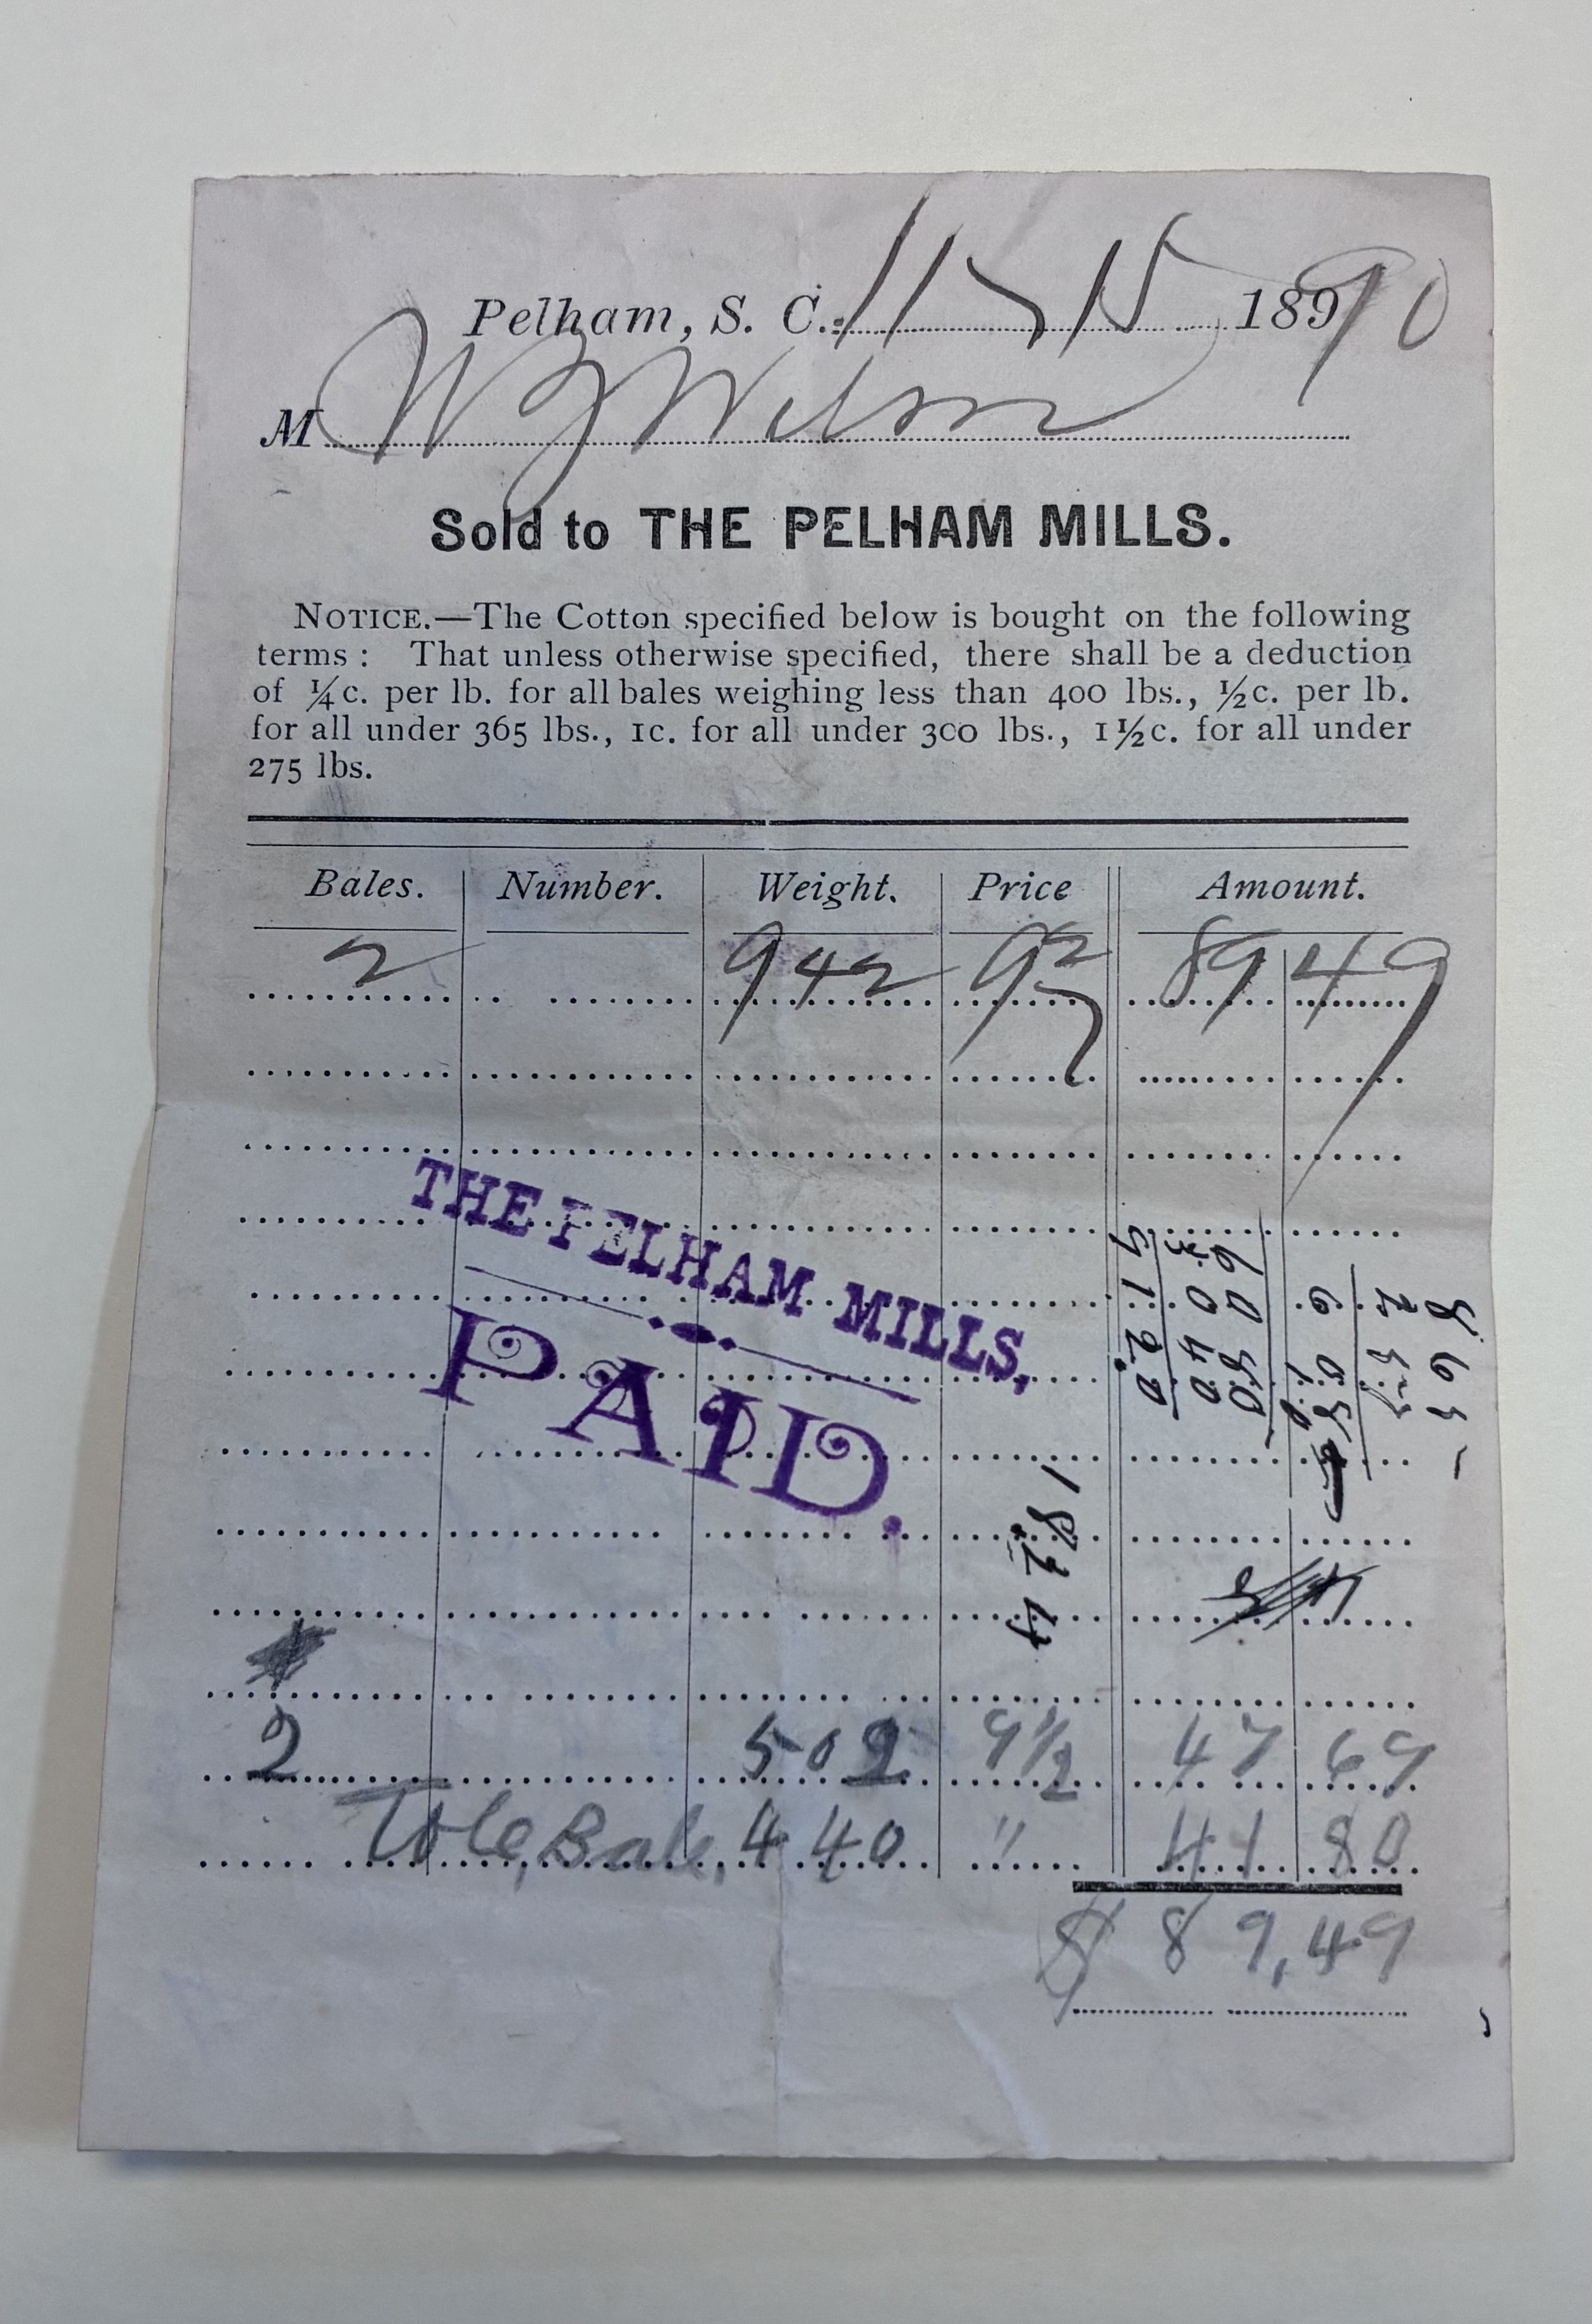 Pelham, S. C. 11/15 1890
M W J Wilson
Sold to THE PELHAM MILLS.
NOTICE.—The Cotton specified below is bought on the following
terms : That unless otherwise specified, there shall be a deduction
of ¼c. per lb. for all bales weighing less than 400 lbs., ½c. per lb.
for all under 365 lbs., 1c. for all under 300 lbs., 1½c. for all under
275 lbs.
Bales. Number. Weight. Price Amount.
2 942 9½ 89 49
THE PELHAM MILLS,
PAID.
2 502 9½ 47 69
Bale, 440 " 41 80
$ 89,49